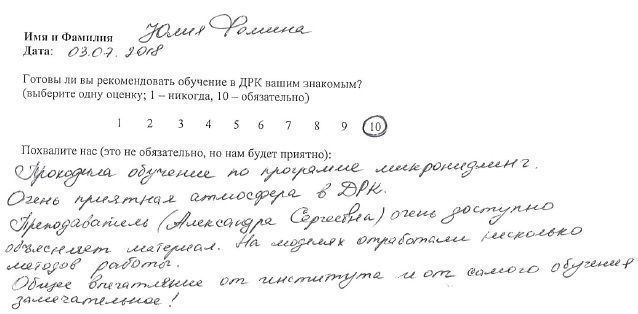 Имя и Фамилия Юлия Фомина
Дата: 03.07.2018
Готовы ли вы рекомендовать обучение в ДРК вашим знакомым?
(выберите одну оценку; 1 – никогда, 10 – обязательно)
1 2 3 4 5 6 7 8 9 10
Похвалите нас (это не обязательно, но нам будет приятно):
Проходила обучение по программе микронидлинг.
Очень приятная атмосфера в ДРК.
Преподаватель (Александра Сергеевна) очень доступно
объясняет материал. На моделях отработали несколько
методов работы.
Общее впечатление от института и от самого обучения
замечательное!